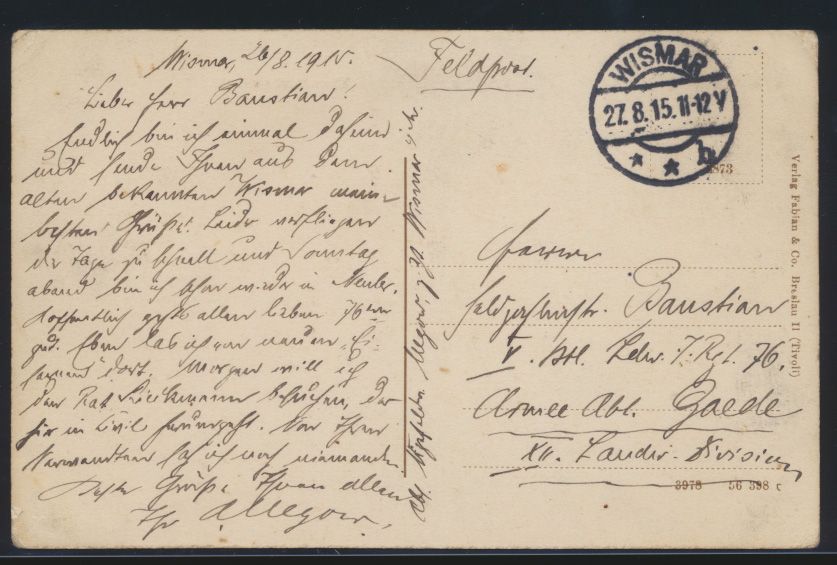 Wismar, 26/8. 1915.
Lieber Herr Baustian!
Endlich bin ich einmal daheim
und sende Ihnen aus dem
alten bekannten Wismar meine
besten Grüße! Leider verfliegen
die Tage zu schnell und Sonntag
abend bin ich schon wieder in
Hoffentlich geht's allen lieben 76ern
gut. Eben las ich vom neuen „Ei-
sernen" dort. Morgen will ich
den Rat besuchen, der
hier in Civil herumgeht. Von Ihren
Verwandten sah ich noch niemanden.
Beste Grüße Ihnen allen
Ihr Allegow.
Abs. Allegow, z. Zt. Wismar i/M.
Feldpost.
WISMAR
27. 8. 15. 11-12 V
* * b
3873
Herrn
Baustian
V. Btl. Ldw. I. Rgt. 76.
Armee Abt. Gaede
XII. Landw. Division
3973 56 398 c
Verlag Fabian & Co. Breslau II (Tivoli)